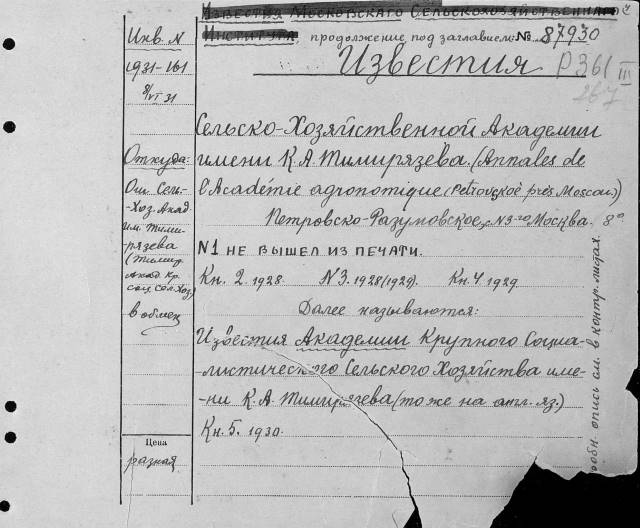 Известия Московскаго Сельскохозяйственнаго
Института, продолжение под заглавием: № 87930
Известия Р361
III
267
Сельско-Хозяйственной Академии
имени К.А. Тимирязева. (Annales de
l'Académie agronomique (Petrovskoë près Moscou.)
Петровско-Разумовское, Москва. 8°
N1 не вышел из печати.
Кн. 2. 1928. N3. 1928(1929). Кн. 4. 1929
Далее называются:
Известия Академии Крупного Социа-
-листического Сельского Хозяйства име-
-ни К.А. Тимирязева (тоже на англ. яз.)
Кн. 5. 1930.
Инв. N
1931-161
8/VI 31
Откуда:
От Сель-
-Хоз. Акад.
им. Тими-
рязева
(Тимир.
Акад. Кр.
Соц. Сел. Хоз.)
в обмен
Цена
разная
опись см. в контр. листах.